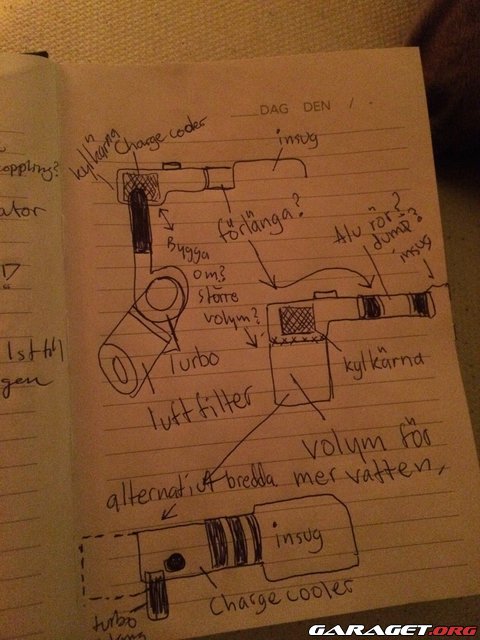 DAG DEN / .
oppling?
ator
1st till
gen
kylkärna
Chargecooler
insug
förlänga?
Bygga
om?
större
volym?
Alu rör?
dump?
insug
Turbo
luftfilter
kylkärna
volym för
mer vatten,
alternativt bredda
insug
Chargecooler
turbo
GARAGET.ORG